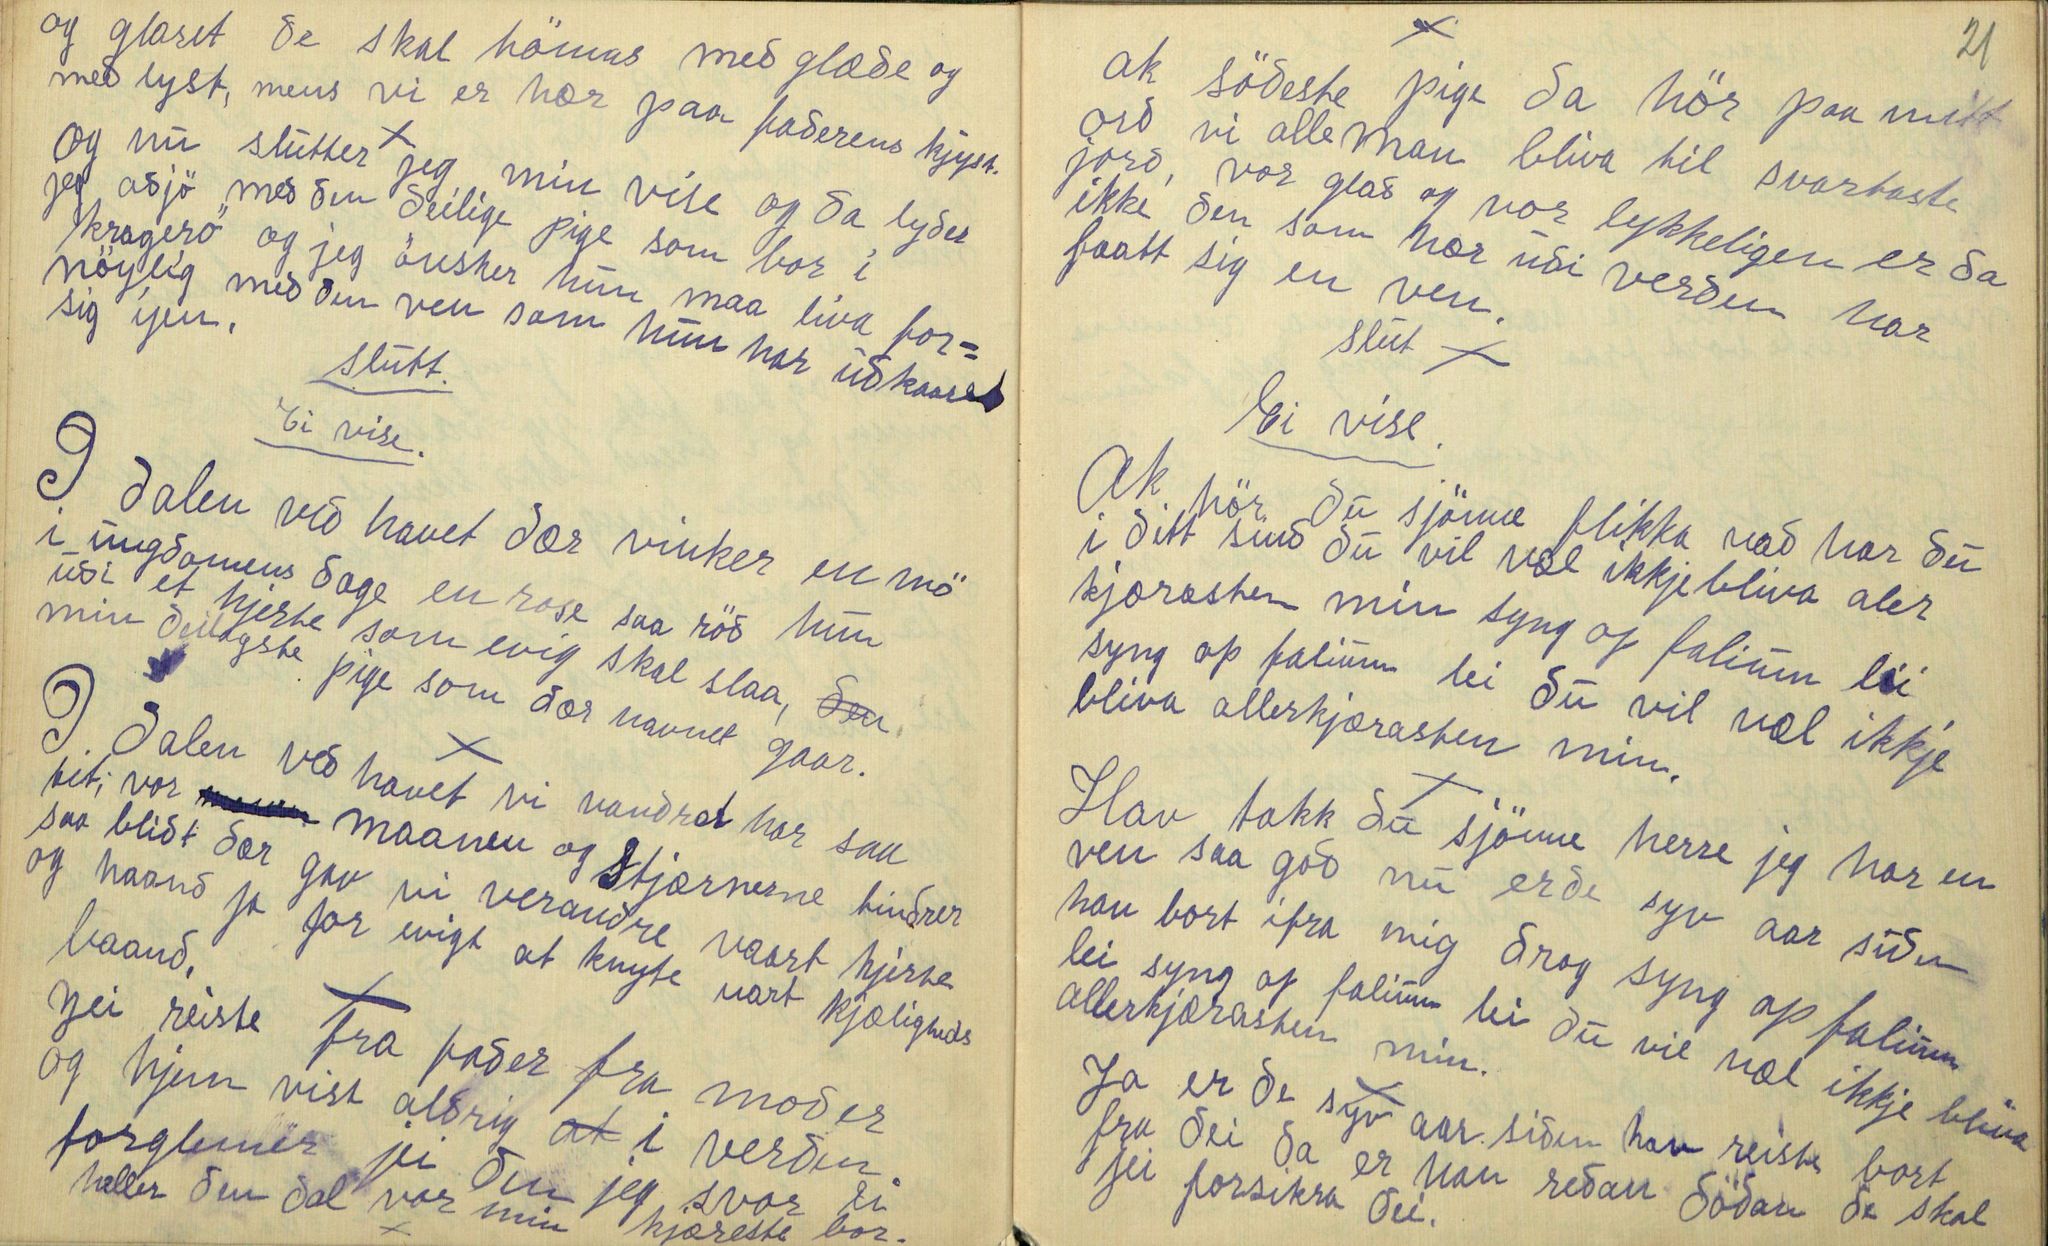 og glaset de skal tömas med glæde og
med lyst, mens vi er hær paa faderens kjyst.
x
og nu slutter jeg min vise og da lyder
jeg adjö med den deilige pige som bor i
kragerö og jeg önsker hun maa liva for=
nöylig med den ven som hun har udkaaret
sig ijen.
slutt.
Ei vise.
I dalen ved havet dær vinker en mö
i ungdomens dage en rose saa röd hun
udi et hjerte som evig skal slaa, den
min deiligste pige som dær navnet gaar.
x
I. dalen ved havet vi vandret har saa
tit, vor maanen og Stjærnerne tindrer
saa blidt dær gav vi verandre vaart hjerte
og haand ja for evigt at knyte vart kjæligheds
baand.
x
Jei reiste fra fader fra moder
og hjem vist aldrig at i verden
forglemer jei den jeg svor ei
heller den dal vor min kjæreste bor.
x
21
x
Ak södeste pige da hör paa mitt
ord vi alle man bliva til svartaste
jord, vor glad og vor lykkeligen er da
ikke den som hær udi verden har
faatt sig en ven.
slut x
Ei vise.
Ak hör du sjönne flikka vad har du
i ditt sind du vil væl ikkje bliva aler
kjærasten min syng op falium lei
syng op falium lei du vil væl ikkje
bliva allerkjærasten min.
x
Hav takk du sjönne herre jeg har en
ven saa god nu er de syv aar siden
han bort ifra mig drog syng op falium
lei syng op falium lei du vil væl ikkje bliva
allerkjærasten min.
x
Ja er de syv aar siden han reiste bort
fra dei da er han redan dödan de skal
jei forsikra dei.